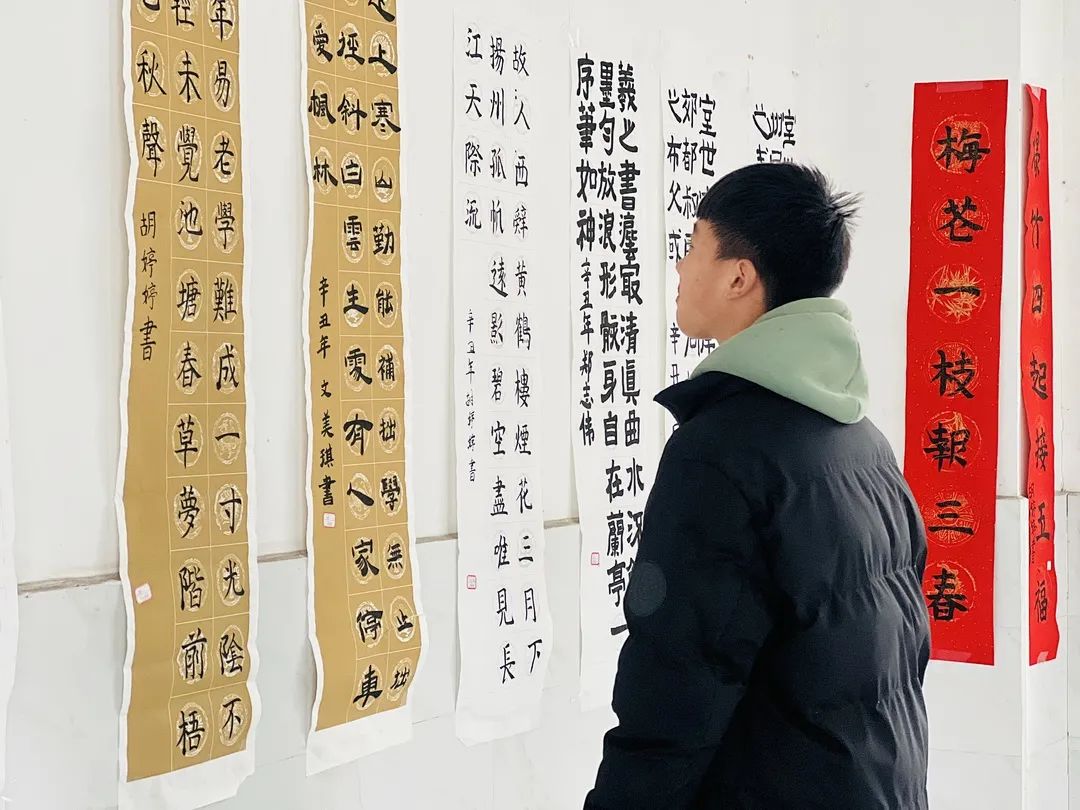 年易老學難成一寸光陰不
輕未覺池塘春草夢階前梧
已秋聲
胡婷婷書
上寒山勤能補拙學無止拙
徑斜白雲生處有人家停車
愛楓林
辛丑年 文美琪書
故人西辭黃鶴樓煙花三月下
揚州孤帆遠影碧空盡唯見長
江天際流
辛丑年
羲之書灋冣清真曲水
墨勻放浪形骸身自在蘭亭一
序筆如神
辛丑年郑志伟
室世
郊都叔
之布父或
梅芲一枝報三春
竹四起接五福